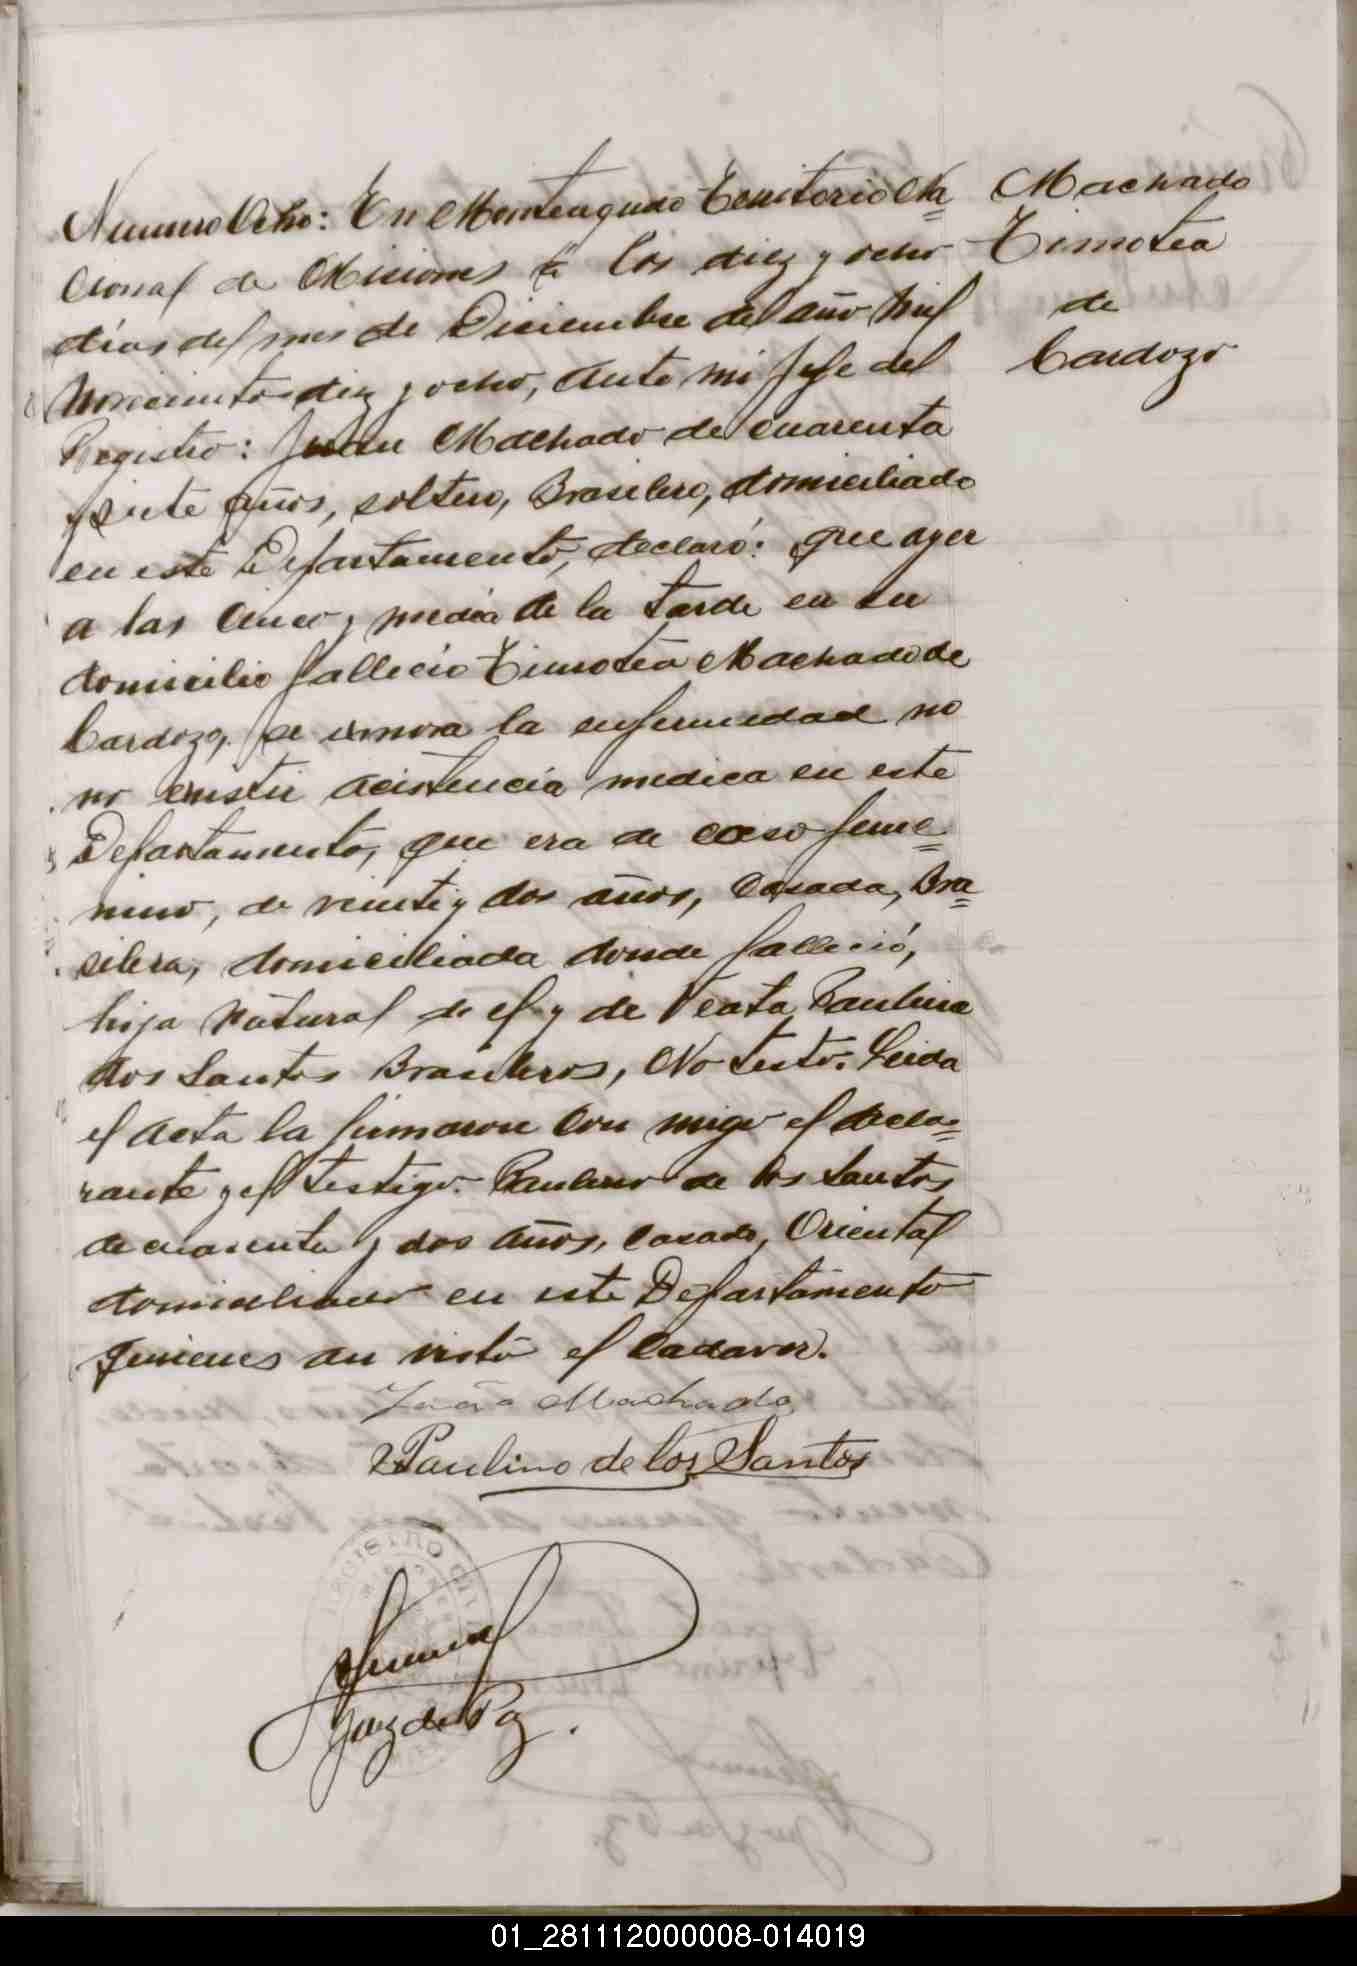 Numero Ocho: En Monteagudo Territorio Na=
cional de Misiones a los diez y ocho
días del mes de Diciembre del año mil
Novecientos diez y ocho, Ante mi Jefe del
Registro: Juan Machado de cuarenta
y siete años, soltero, Brasilero, domiciliado
en este Departamento, declaró: que ayer
a las cinco y media de la tarde en su
domicilio fallecio Timotea Machado de
Cardozo, se ignora la enfermedad no
no existir acistencia medica en este
Departamento, que era de sexo feme=
nino, de veinte y dos años, Casada, Bra=
silera, domiciliada donde falleció,
hija Natural de el y de Veata Paulina
dos Santos Brasileros, No testo. Leida
el acta la firmaron con migo el decla=
rante y el testigo. Paulino de los Santos
de cuarenta y dos años, Casado, Oriental
domiciliado en este Departamento
quienes an visto el Cadaver.
João Machado
Paulino de los Santos
REGISTRO CIVIL
Juez de Paz.
Machado
Timotea
de
Cardozo
01_281112000008-014019